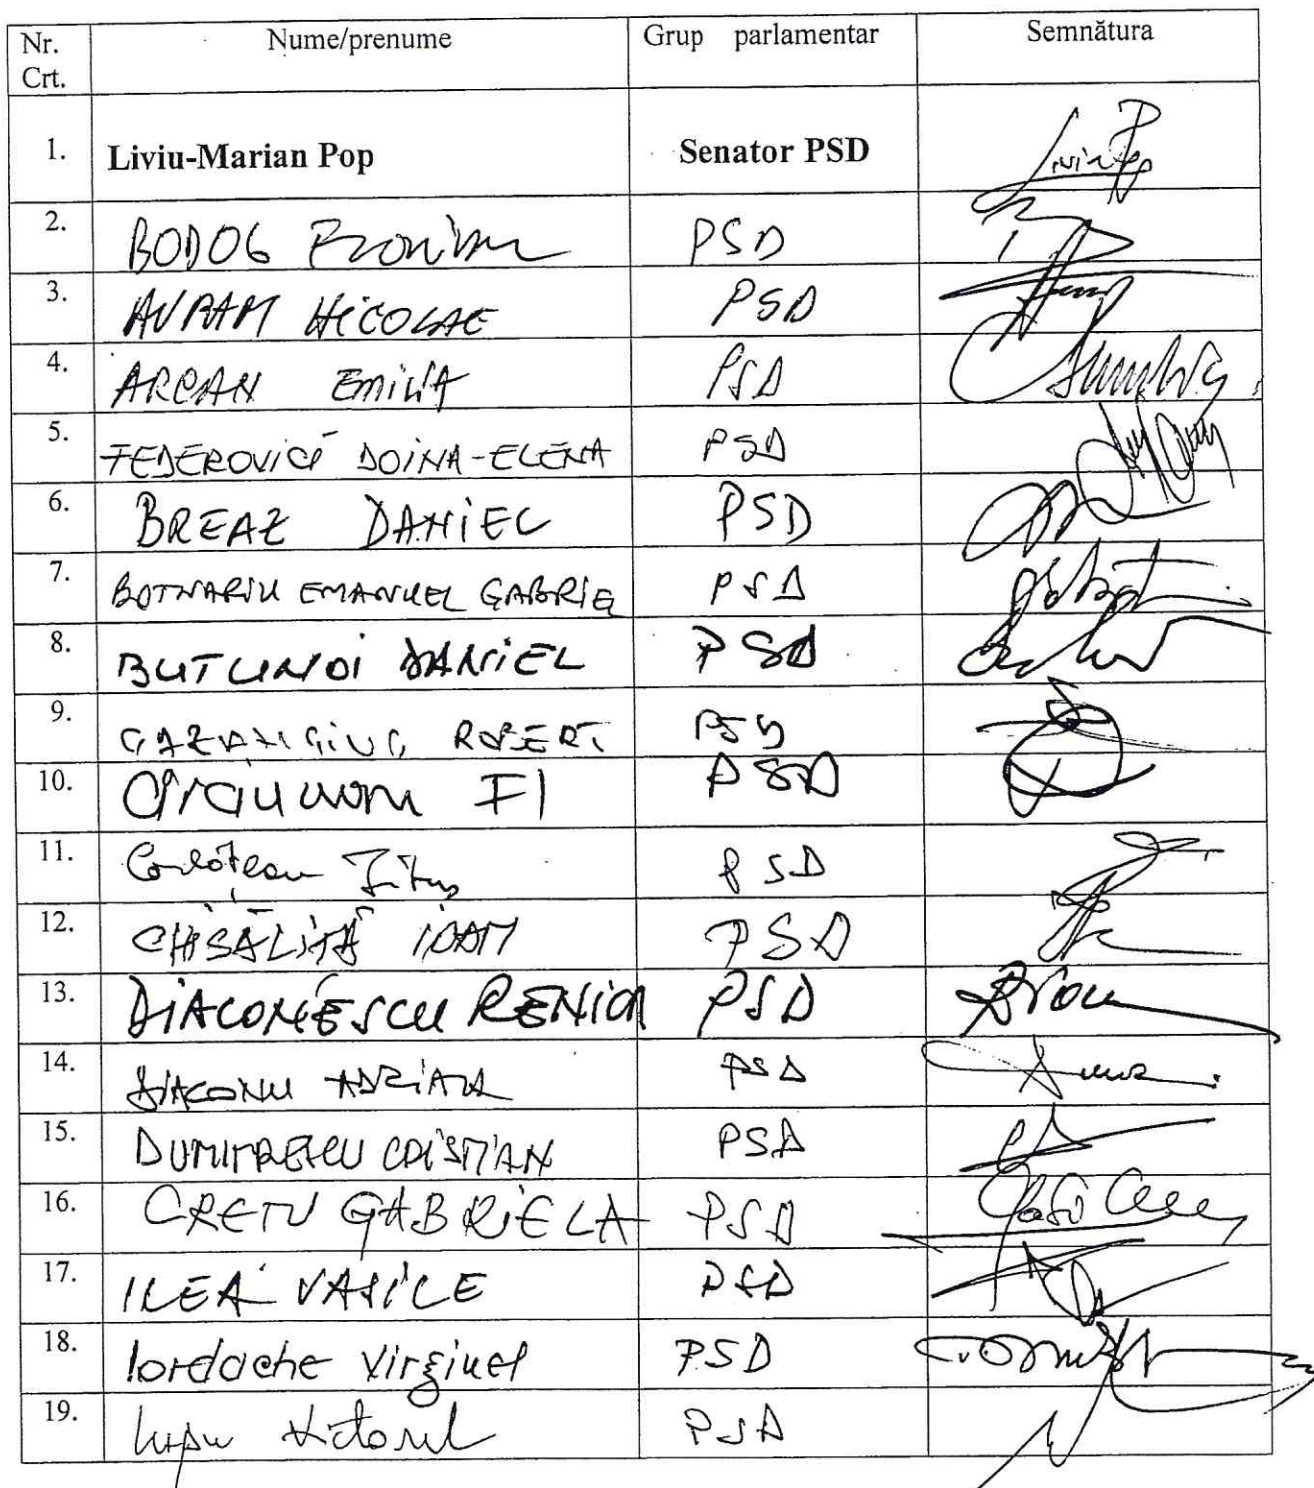 Nr. Crt. Nume/prenume Grup parlamentar Semnătura
1. Liviu-Marian Pop Senator PSD
2. BODOG Florian PSD
3. AVRAM NICOLAE PSD
4. ARCAN EMILIA PSD
5. FEDEROVICI DOINA-ELENA PSD
6. BREAZ DANIEL PSD
7. BOTNARIU EMANUEL GABRIEL PSD
8. BUTUNOI DANIEL PSD
9. CAZANCIUC ROBERT PSD
10. PSD
11. Corlățean Titus PSD
12. CHISĂLIȚĂ IOAN PSD
13. DIACONESCU RENICA PSD
14. DIACONU ADRIAN PSD
15. DUMITRESCU CRISTIAN PSD
16. CREȚU GABRIELA PSD
17. ILEA VASILE PSD
18. Iordache Virginel PSD
19. Lupu Victorel PSD